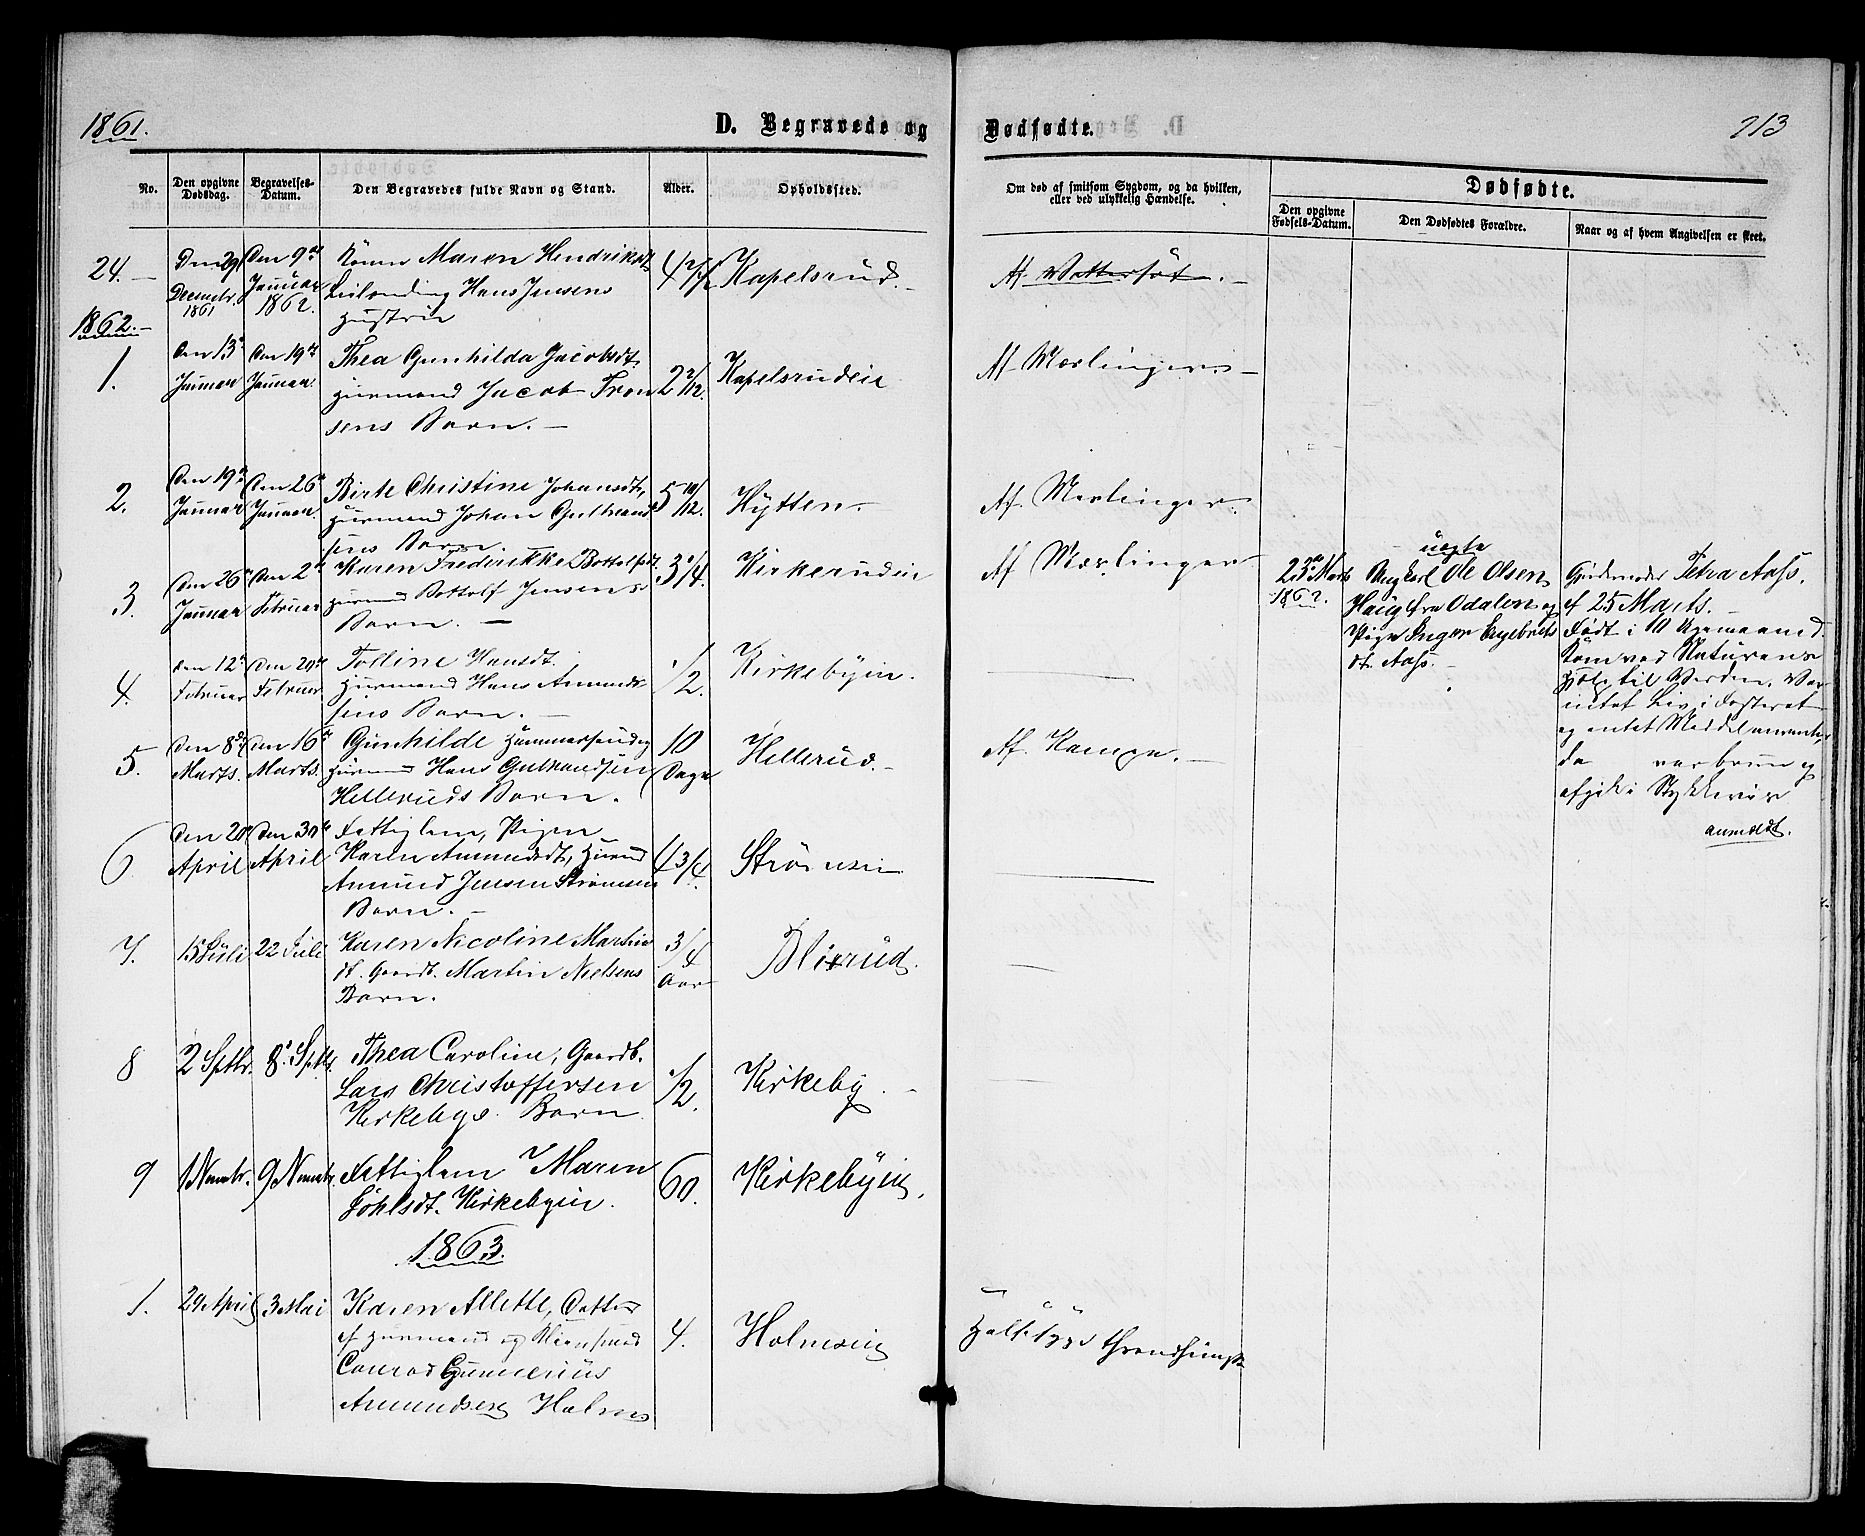 1861.
D. Begravede og Dødfødte.
213
No.
Den opgivne Dødsdag.
Begravelses-Datum.
Den Begravedes fulde Navn og Stand.
Alder.
Opholdssted.
Om død af smitsom Sygdom, og da hvilken, eller ved ulykkelig Hændelse.
Dødfødte.
Den opgivne Fødsels-Datum.
Den Dødfødtes Forældre.
Naar og af hvem Angivelsen er skeet.
24.
Den 29
Decembr.
1861
Den 9de
Januar
1862.
Konen Maren Hendriksdt.
Leilending Hans Jensens
Hustru
Kapelsrud.
Af Vattersot.
1862.
1.
Den 13de
Januar
Den 19de
Januar.
Thea Gunhilda Jacobsdt.
Huusmand Jacob Tron
sens Barn.
2 2/12.
Kapelsrudeie
Af Mæslinger
2.
Den 19de
Januar
Den 26de
Januar.
Birte Christine Johansdt,
Huusmand Johan Gulbrand
sens Barn
5 10/12.
Hytten
Af Mæslinger
3.
Den 26de
Januar
Den 2den
Februar
Karen Frederikke Bottolfsdt.
Huusmand Bottolf Jensens
Barn.
3 1/4.
Kirkerudeie
Af Mæslinger
23de Marts
1862.
uægte
Ungkarl Ole Olsen
Haug fra Odalen og
Pige Inger Engebrets
dt. Aass.
Gjordemoder Petra Aass.
d 25 Marts.
Født i 10 Ugemaaned.
Kom ved Naturens
Hjælp til Verden. Var
intet Liv i Fosteret
og intet
da var brun og
afgik i Stykkeviis
anmeldt.
4.
Den 12te
Februar
Den 20de
Februar
Tolline Hansdt.
Huusmand Hans Amund
sens Barn.
1/2.
Kirkebyeie.
5.
Den 8de
Marts.
Den 16de
Marts.
Gunhilde
Huusmand Hans Gulbrandsen
Helleruds Barn.
10
Dage
Hellerud.
Af Krampe.
6
Den 20de
April
Den 30te
April
Fattiglem, Pigen
Karen Amundsdt, Huusmd
Amund Jensen Strømsen
Barn.
4 3/4.
Strømseie
7.
15 Juli
22 Juli
Karen Nicoline Martins
dt. Gaardb. Martin Nielsens
Barn.
3/4
Aar
Blixrud.
8
2 Septbr.
8de Septbr.
Thea Caroline, Gaardb.
Lars Christoffersen
Kirkebys Barn
1/2.
Kirkeby.
9
1 Novmbr.
9 Novmbr.
Fattiglem Maren
Kirkebyeie.
60.
Kirkebyeie.
1863.
1.
29 April
3 Mai
Karen Allette, Datter
af Huusmand og
Conrad Gunnerius
Amundsen Holmen
4.
Holmseie
Halssyge